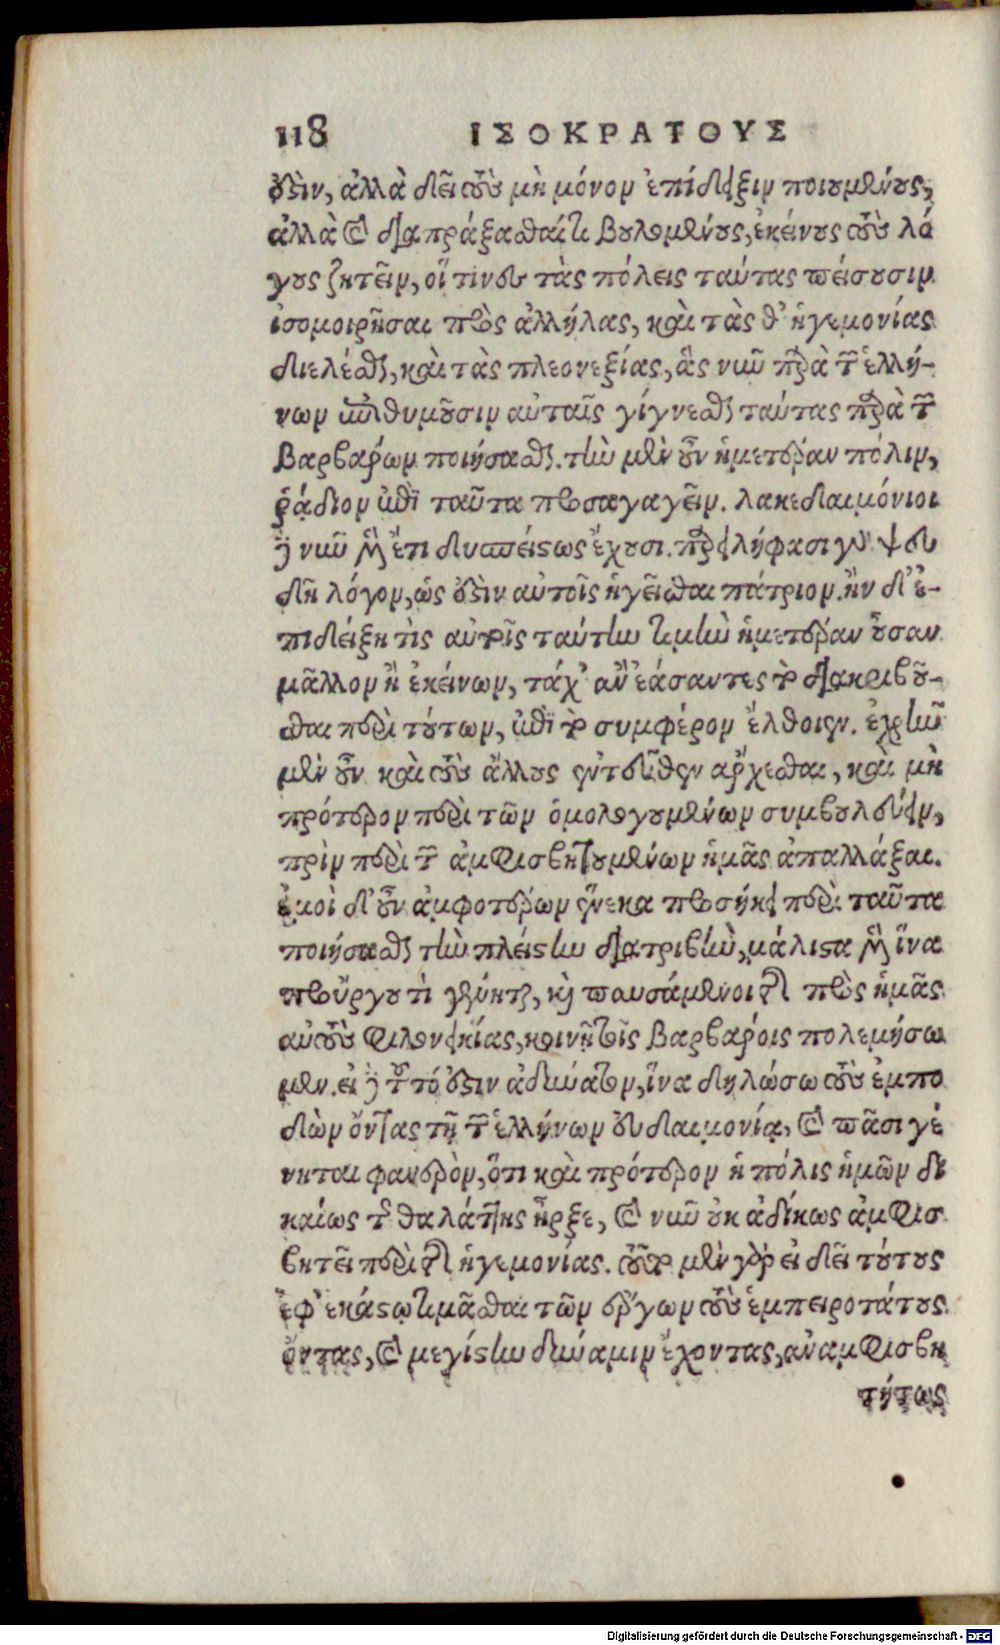 118 ΙΣΟΚΡΑΤΟΥΣ
οὐδὲν, ἀλλὰ δεῖ τοὺς μὴ μόνον ἐπίδειξιν ποιουμένους,
ἀλλὰ καὶ διαπράξασθαί τι βουλομένους, ἐκείνους τοὺς λό
γους ζητεῖν, οἵ τινες τὰς πόλεις ταύτας πείσουσιν
ἰσομοιρῆσαι πρὸς ἀλλήλας, καὶ τὰς θ' ἡγεμονίας
διελέσθαι, καὶ τὰς πλεονεξίας, ἃς νῦν παρὰ τῶν ἑλλή-
νων ἐπιθυμοῦσιν αὐταῖς γίγνεσθαι ταύτας παρὰ τῶν
Βαρβάρων ποιήσασθαι. τὴν μὲν οὖν ἡμετέραν πόλιν,
ῥᾴδιον ἐπὶ ταῦτα προσαγαγεῖν. λακεδαιμόνιοι
δὲ νῦν μὲν ἔτι δυσπείστως ἔχουσι. παρειλήφασι γὰρ ψευ
δῆ λόγον, ὡς οὐδὲν αὐτοῖς ἡγεῖσθαι πάτριον. ἢν δ' ἐ-
πιδείξῃ τὶς αὐτοῖς ταύτην τιμὴν ἡμετέραν οὖσαν
μᾶλλον ἢ ἐκείνων, τάχ' ἂν ἐάσαντες τὸ διακριβοῦ-
σθαι περὶ τούτων, ἐπὶ τὸ συμφέρον ἔλθοιεν. ἐχρῆν
μὲν οὖν καὶ τοὺς ἄλλους ἐντεῦθεν ἄρχεσθαι, καὶ μὴ
πρότερον περὶ τῶν ὁμολογουμένων συμβουλεύειν,
πρὶν περὶ τῶν ἀμφισβητουμένων ἡμᾶς ἀπαλλάξαι.
ἐμοὶ δ' οὖν ἀμφοτέρων ἕνεκα προσήκει περὶ ταῦτα
ποιήσασθαι τὴν πλείστην διατριβὴν, μάλιστα μὲν ἵνα
προὔργου τὶ γένηται, καὶ παυσάμενοι τῆς πρὸς ἡμᾶς
αὐτοὺς φιλονεικίας, κοινῇ τοῖς Βαρβάροις πολεμήσω
μεν. εἰ δὲ τοῦτό ἐστιν ἀδύνατον, ἵνα δηλώσω τοὺς ἐμπο
δὼν ὄντας τῇ τῶν ἑλλήνων εὐδαιμονίᾳ, καὶ πᾶσι γέ
νηται φανερὸν, ὅτι καὶ πρότερον ἡ πόλις ἡμῶν δι
καίως τῆς θαλάττης ἦρξε, καὶ νῦν οὐκ ἀδίκως ἀμφισ
βητεῖ περὶ τῆς ἡγεμονίας. τοῦτο μὲν γὰρ εἰ δεῖ τούτους
ἐφ' ἑκάστῳ τιμᾶσθαι τῶν ἔργων τοὺς ἐμπειροτάτους
ὄντας, καὶ μεγίστην δύναμιν ἔχοντας, ἀναμφισβη
τήτως
Digitalisierung gefördert durch die Deutsche Forschungsgemeinschaft - DFG